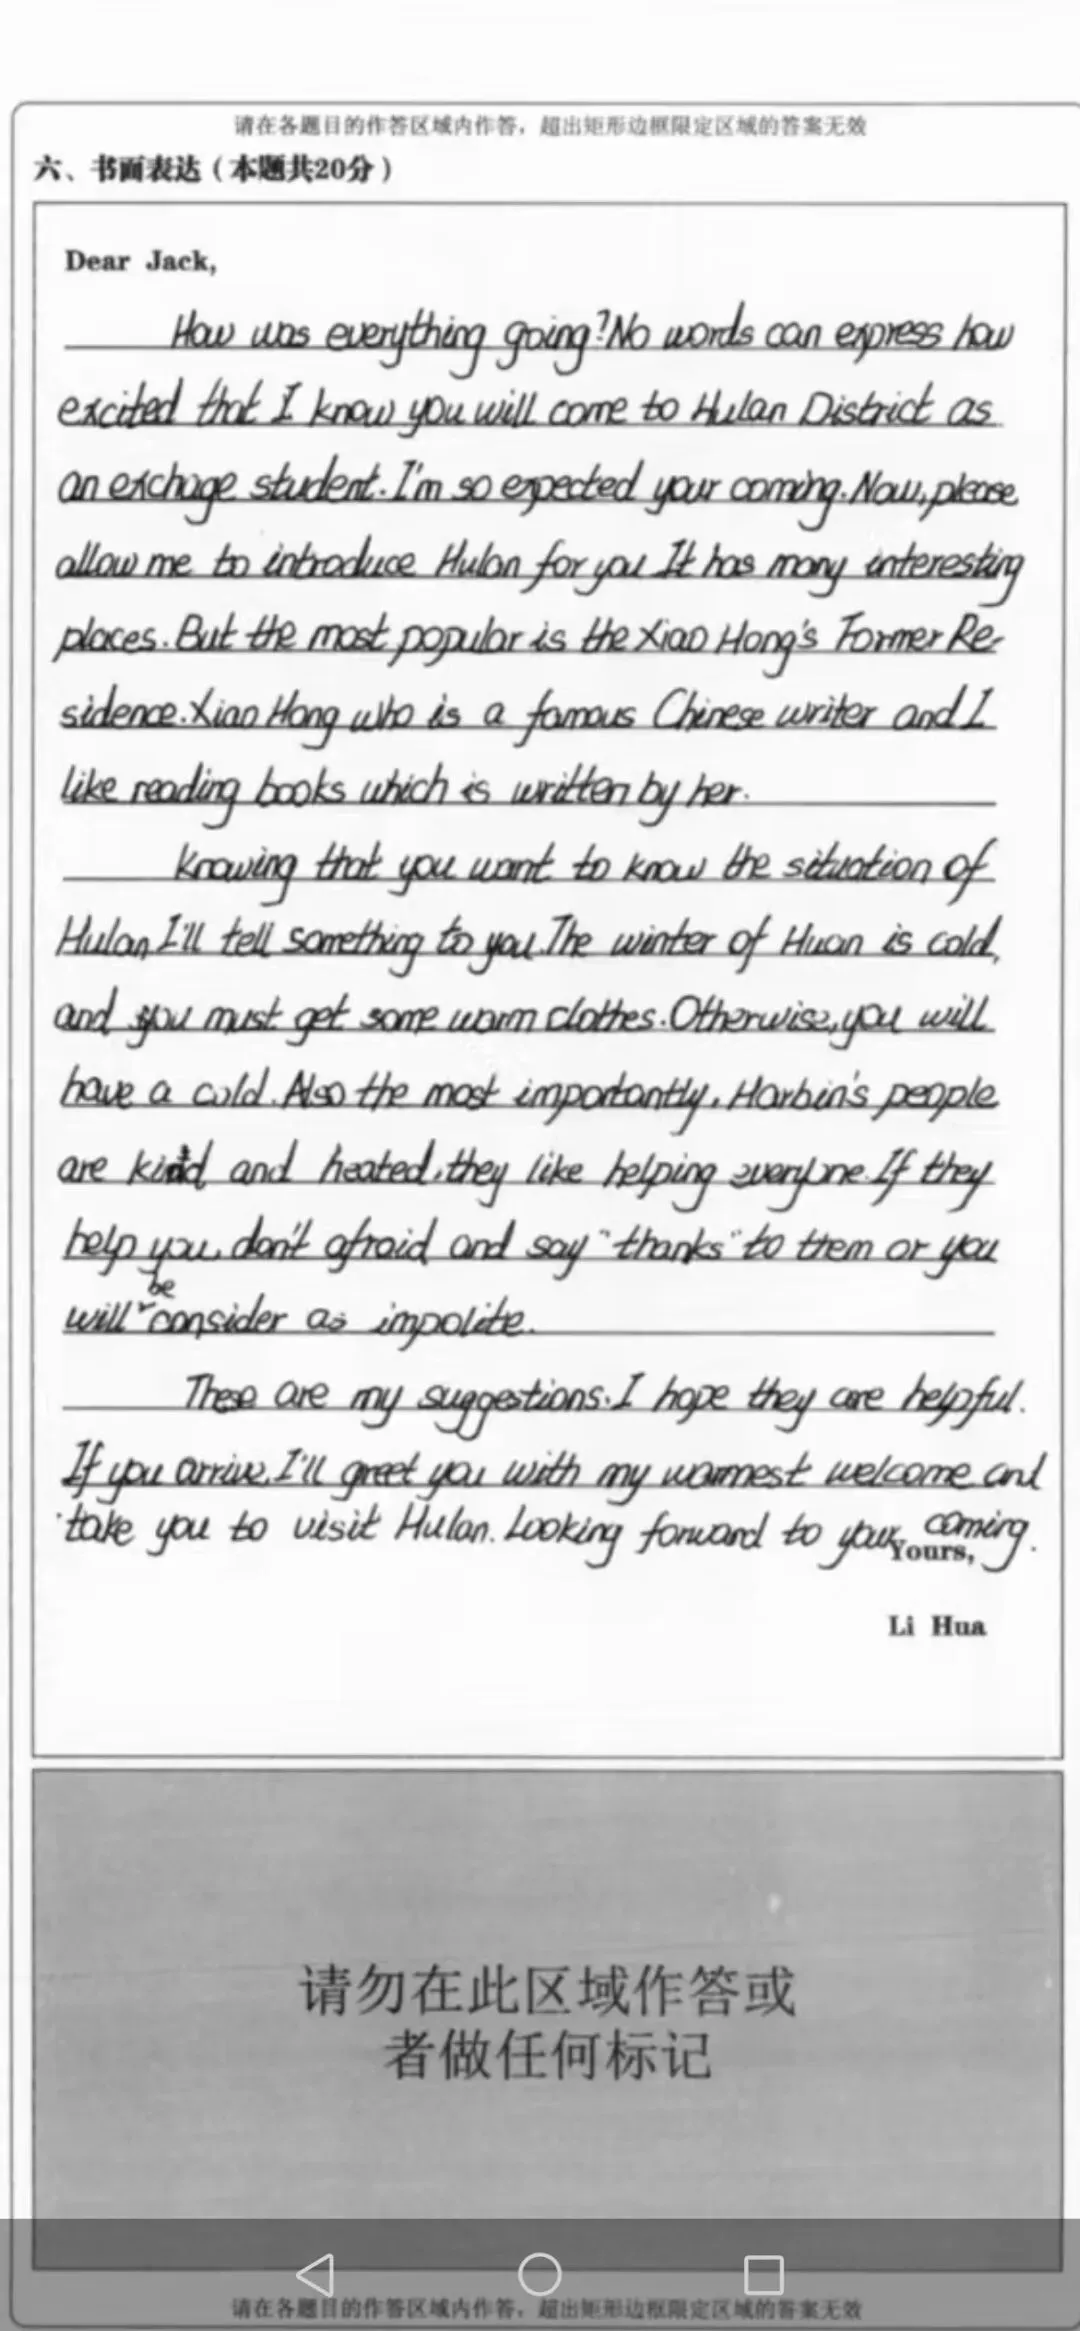 请在各题目的作答区域内作答，超出矩形边框限定区域的答案无效
六、书面表达（本题共20分）
Dear Jack,
How was everything going? No words can express how
excited that I know you will come to Hulan District as
an exchage student. I'm so expected your coming. Now, please
allow me to introduce Hulan for you It has many interesting
places. But the most popular is the Xiao Hong's Former Re-
sidence. Xiao Hong who is a famous Chinese writer and I
like reading books which is written by her.
Knowing that you want to know the situation of
Hulan, I'll tell something to you. The winter of Huan is cold,
and you must get some warm clothes. Otherwise, you will
have a cold. Also the most importantly, Harbin's people
are kind and heated, they like helping everyone. If they
help you, don't afraid and say "thanks" to them or you
will be consider as impolite.
These are my suggestions. I hope they are helpful.
If you arrive, I'll greet you with my warmest welcome and
take you to visit Hulan. Looking forward to your coming.
Yours,
Li Hua
请勿在此区域作答或
者做任何标记
请在各题目的作答区域内作答，超出矩形边框限定区域的答案无效